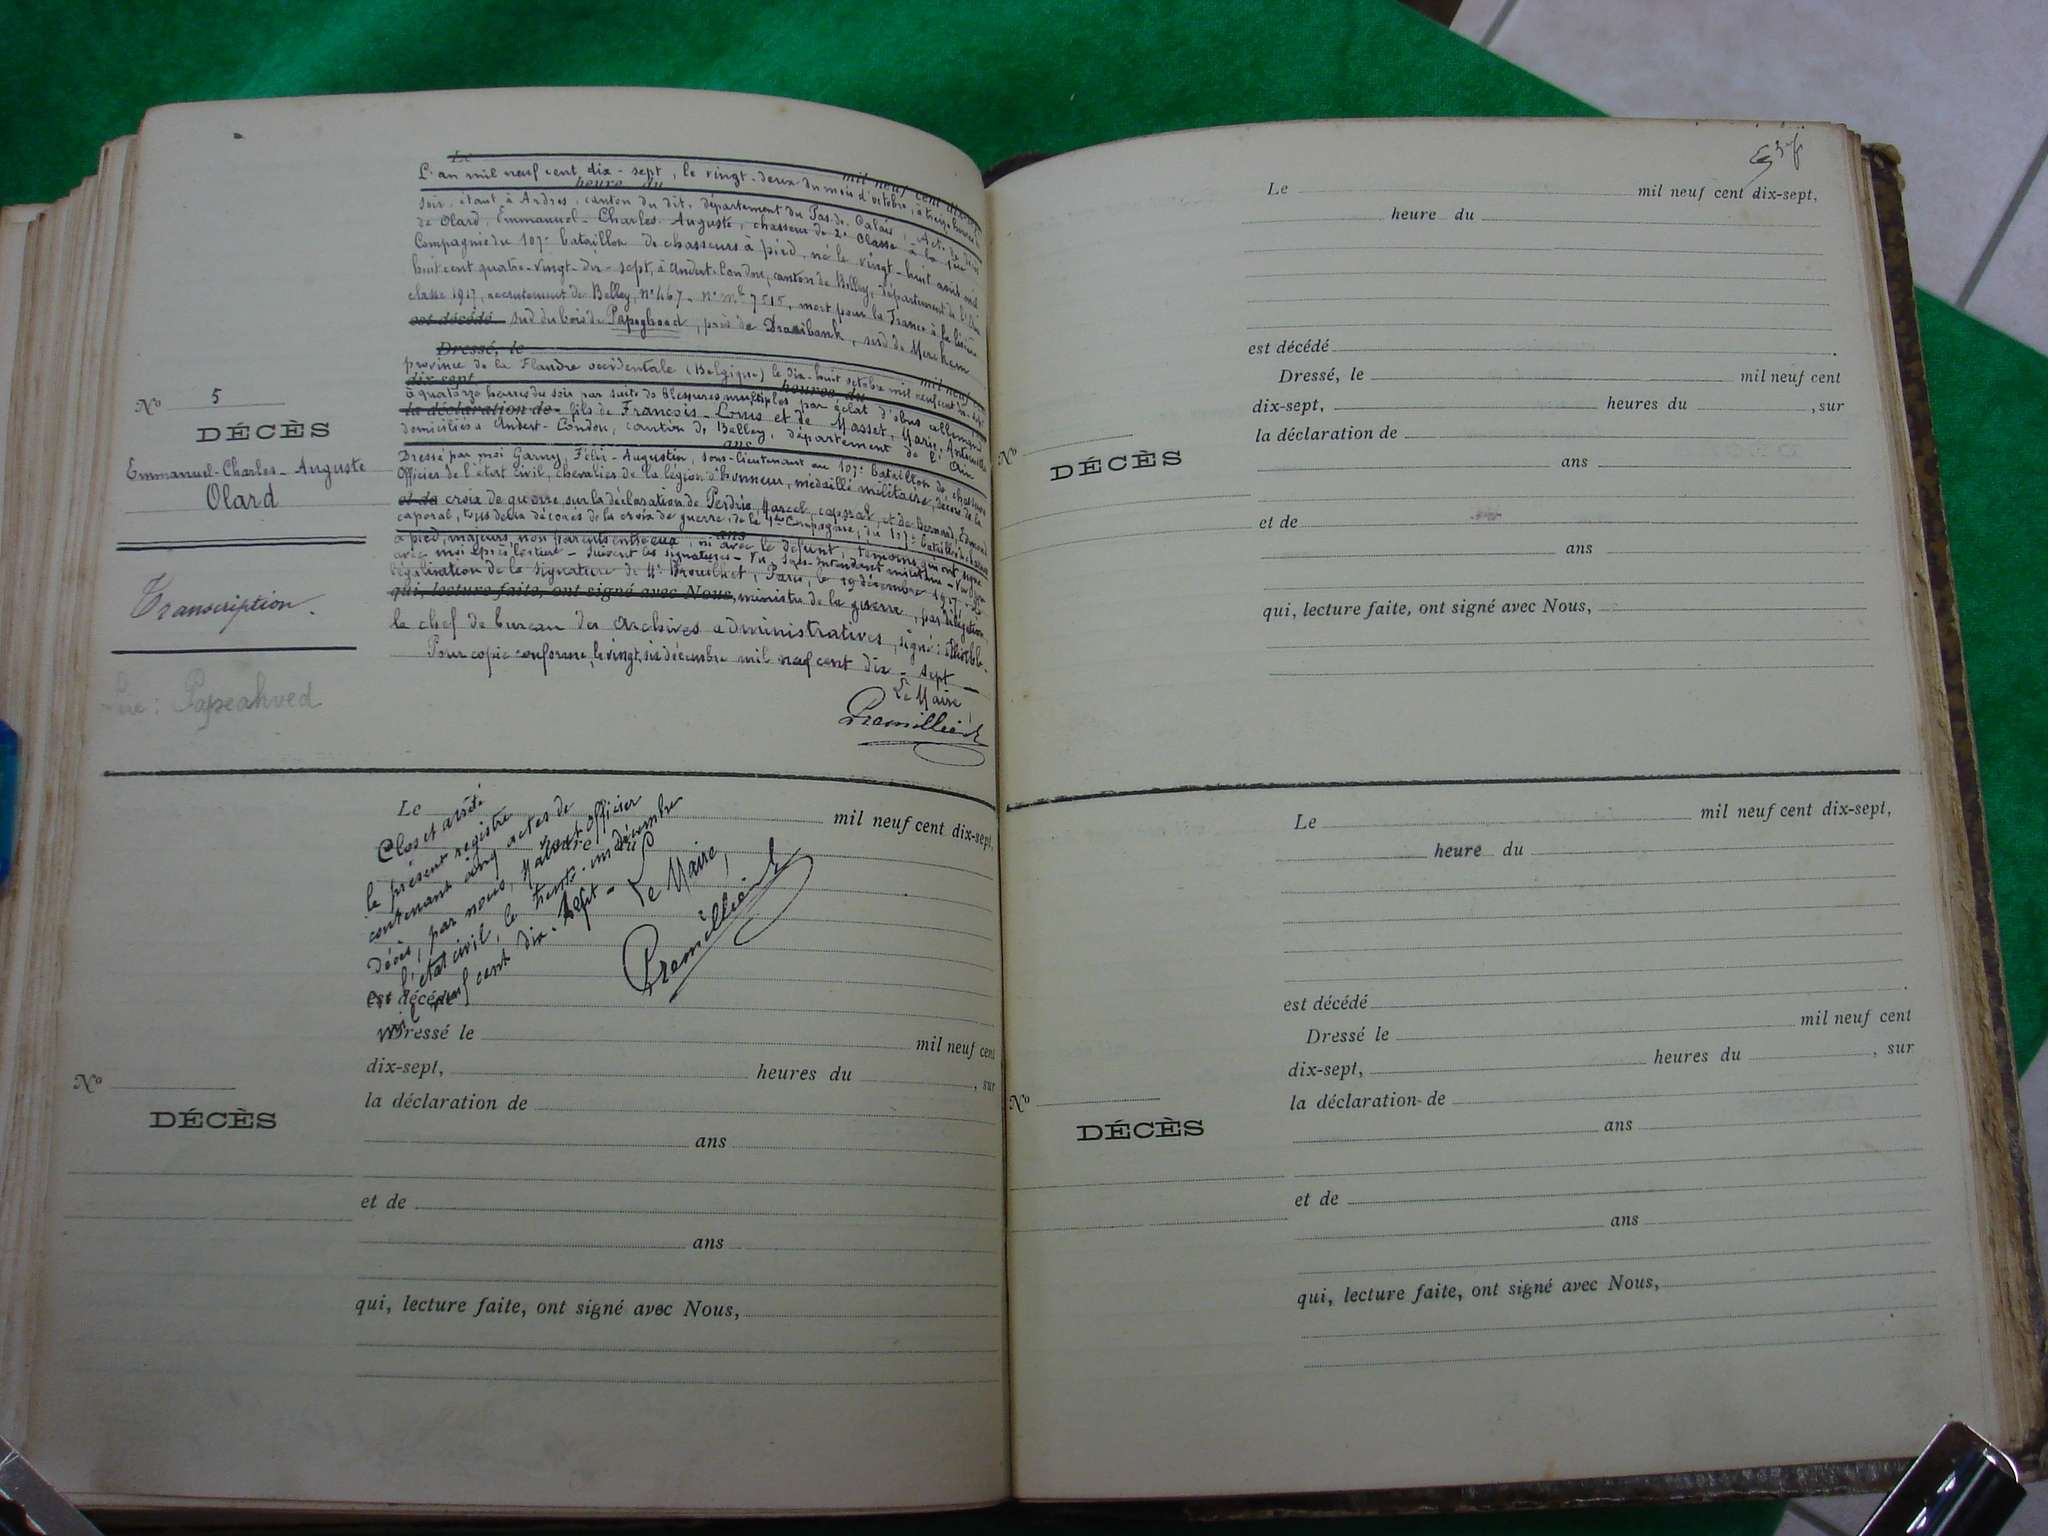 Le mil neuf cent dix-sept
L'an mil neuf cent dix-sept, le vingt-deux du mois d'octobre, à treize heures du
heure du
soir, étant à Andres, canton du dit, département du Pas-de-Calais, Acte de décès
de Olard, Emmanuel-Charles-Auguste, chasseur de 2e Classe à la
Compagnie du 107e bataillon de chasseurs à pied, né le vingt-huit août mil
huit cent quatre-vingt-dix-sept, à Andert-Condon, canton de Belley, département de l'Ain
classe 1917, recrutement de Belley, No 467 - No Mle 7515, mort pour la France à la lisière
est décédé sud du bois de Papeghoed, près de Draaibank, sud de Merckem
Dressé, le mil neuf cent
province de la Flandre occidentale (Belgique) le dix-huit octobre mil neuf cent dix-sept
dix-sept heures du
à quatorze heures du soir par suite de blessures multiples par éclat d'obus allemand
la déclaration de fils de François-Louis et de Masset, Marie, Antoinette
domiciliés à Andert-Condon, canton de Belley, département de l'Ain
ans
Dressé par moi Garny, Félix-Augustin, sous-lieutenant au 107e bataillon de chasseurs
Officier de l'état civil, chevalier de la légion d'honneur, médaillé militaire, décoré de la
et de croix de guerre, sur la déclaration de Perdrix, Marcel, caporal, et de Bernard, Edmond
caporal, tous deux décorés de la croix de guerre, de la Compagnie, du 107e bataillon de chasseurs
ans
à pied, majeurs, non parents entre eux, ni avec le défunt, témoins qui ont signé
avec moi après lecture - Suivent les signatures - Vu, sous-intendant militaire - Vu pour
légalisation de la signature de Mr Brouilhet, Paris, le 19 décembre 1917. Le
qui, lecture faite, ont signé avec Nous, ministre de la guerre, par délégation
le chef de bureau des Archives administratives, signé:
Pour copie conforme, le vingt-six décembre mil neuf cent dix-sept
Le Maire,
Premillieux
No 5
DÉCÈS
Emmanuel-Charles-Auguste
Olard
Transcription.
Lire: Papeahved
Le mil neuf cent dix-sept,
heure du
Clos et arrêté
le présent registre
contenant cinq actes de
décès, par nous, Maire et Officier
de l'état civil, le trente-un décembre
mil neuf cent dix-sept -
Le Maire,
Premillieux
est décédé
Dressé le mil neuf cent
dix-sept, heures du , sur
la déclaration de
ans
No
DÉCÈS
et de
ans
qui, lecture faite, ont signé avec Nous,
Le mil neuf cent dix-sept,
heure du
est décédé .
Dressé, le mil neuf cent
dix-sept, heures du , sur
la déclaration de
No
DÉCÈS
ans
et de
ans
qui, lecture faite, ont signé avec Nous,
Le mil neuf cent dix-sept,
heure du
est décédé .
Dressé le mil neuf cent
dix-sept, heures du , sur
la déclaration de
No
DÉCÈS
ans
et de
ans
qui, lecture faite, ont signé avec Nous,